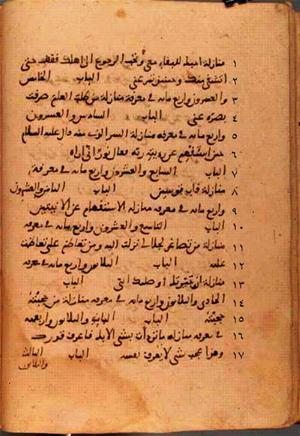 ١ منازلة احبك للبقاء معي وتحب الرجوع الى اهلك فقف حتى
٢ اتشفى منك وحينئذ تمر عني الباب الخامس
٣ والعشرون واربع مائه في معرفة منازلة من طلب العلم صرفت
٤ بصره عني الباب السادس والعشرون
٥ واربع مائه في معرفه منازلة السر الذي منه قال عليه السلام
٦ حين استفهم عن رؤية ربه فقال نورًا انى اراه
٧ الباب السابع والعشرون واربع مائه في معرفة
٨ منازلة قاب قوسين الباب الثامن والعشرون
٩ واربع مائه في معرفه منازله الاستفهام عن الانيتين
١٠ الباب التاسع والعشرون واربع مائه في معرفه
١١ منازلة من تصاغر لجلالي نزلت اليه ومن تعاظم علي تعاظمت
١٢ عليه الباب الثلاثون واربع مائه في معرفه
١٣ منازلة ان حيرتك اوصلتك الي الباب
١٤ الحادي والثلاثون واربع مائه في معرفه منازلة من حجبته
١٥ حجبته الباب الثاني والثلاثون واربعمائه
١٦ في معرفه منازله ما ارتديت بشي الا بك فاعرف قدرك
١٧ وهذا عجب شي لا يعرف نفسه الباب الثالث
والثلاثون